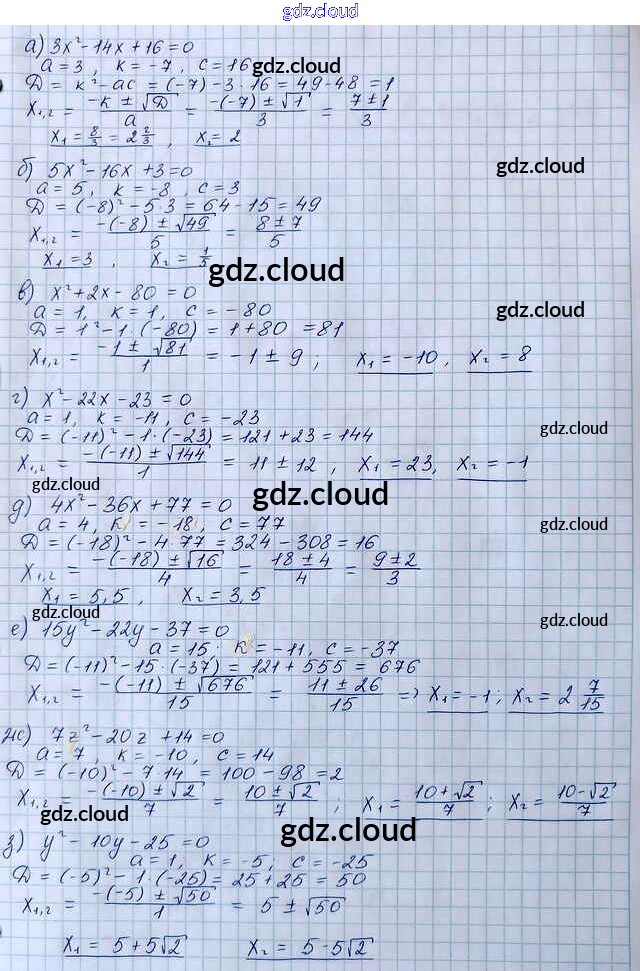 gdz.cloud
а) 3x² - 14x + 16 = 0
a = 3, k = -7, c = 16 gdz.cloud
D = k² - ac = (-7) - 3 · 16 = 49 - 48 = 1
x₁,₂ = (-k ± √D)/a = (-(-7) ± √1)/3 = (7 ± 1)/3
x₁ = 8/3 = 2 2/3, x₂ = 2
б) 5x² - 16x + 3 = 0 gdz.cloud
a = 5, k = -8, c = 3
D = (-8)² - 5·3 = 64 - 15 = 49
x₁,₂ = (-(-8) ± √49)/5 = (8 ± 7)/5
x₁ = 3, x₂ = 1/5
gdz.cloud
в) x² + 2x - 80 = 0
a = 1, k = 1, c = -80 gdz.cloud
D = 1² - 1 · (-80) = 1 + 80 = 81
x₁,₂ = (-1 ± √81)/1 = -1 ± 9; x₁ = -10, x₂ = 8
г) x² - 22x - 23 = 0
a = 1, k = -11, c = -23 gdz.cloud
D = (-11)² - 1 · (-23) = 121 + 23 = 144
x₁,₂ = (-(-11) ± √144)/1 = 11 ± 12, x₁ = 23, x₂ = -1
gdz.cloud gdz.cloud
д) 4x² - 36x + 77 = 0
a = 4, k = -18, c = 77 gdz.cloud
D = (-18)² - 4 · 77 = 324 - 308 = 16
x₁,₂ = (-(-18) ± √16)/4 = (18 ± 4)/4 = (9 ± 2)/3
x₁ = 5,5, x₂ = 3,5
gdz.cloud gdz.cloud
е) 15y² - 22y - 37 = 0
a = 15 k = -11, c = -37
D = (-11)² - 15 · (-37) = 121 + 555 = 676
x₁,₂ = (-(-11) ± √676)/15 = (11 ± 26)/15 => x₁ = -1; x₂ = 2 7/15
ж) 7z² - 20z + 14 = 0
a = 7, k = -10, c = 14
D = (-10)² - 7·14 = 100 - 98 = 2
x₁,₂ = (-(-10) ± √2)/7 = (10 ± √2)/7; x₁ = (10 + √2)/7; x₂ = (10 - √2)/7
gdz.cloud gdz.cloud gdz.cloud
з) y² - 10y - 25 = 0
a = 1, k = -5, c = -25
D = (-5)² - 1 · (-25) = 25 + 25 = 50
x₁,₂ = (-(-5) ± √50)/1 = 5 ± √50
x₁ = 5 + 5√2 x₂ = 5 - 5√2